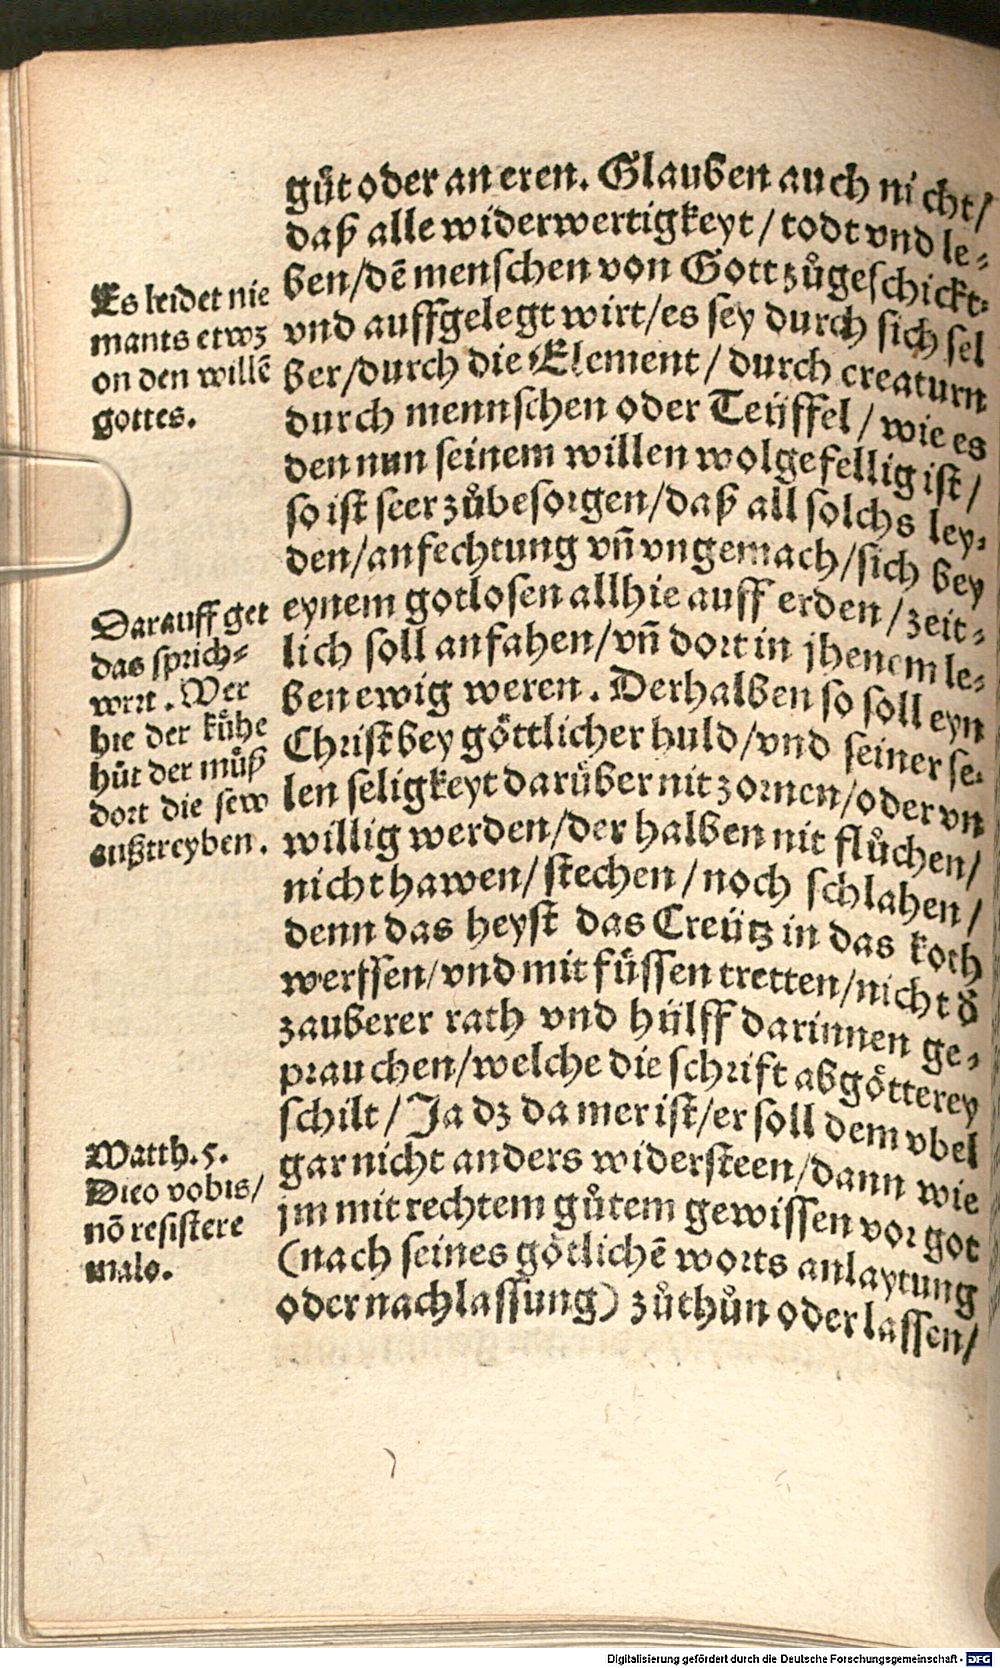 guͤt oder an eren. Glauben auch nicht/
daß alle widerwertigkeyt/ todt vnd le⸗
ben/dē menschen von Gott zůgeschickt⸗
vnd auffgelegt wirt/es sey durch sich sel
ber/durch die Element/ durch creaturn
durch mennschen oder Teüffel/ wie es
den nun seinem willen wolgefellig ist/
so ist seer zůbesorgen/daß all solchs ley⸗
den/anfechtung vñ vngemach/sich bey
eynem gotlosen allhie auff erden/zeit⸗
lich soll anfahen/vñ dort in jhenem le⸗
ben ewig weren. Derhalben so soll eyn
Christ bey goͤttlicher huld/vnd seiner se⸗
len seligkeyt daruͤber nit zornen/oder vn
willig werden/der halben nit flůchen/
nicht hawen/ stechen/noch schlahen/
denn das heyst das Creütz in das koth
werffen/vnd mit fuͤssen tretten/nicht d̄
zauberer rath vnd hülff darinnen ge⸗
prauchen/welche die schrift abgoͤtterey
schilt/ Ja dz da mer ist/er soll dem vbel
gar nicht anders widersteen/dann wie
jm mit rechtem gůtem gewissen vor got
(nach seines goͤtlichē worts anlaytung
oder nachlassung) zůthůn oder lassen/
Es leidet nie
mants etwz
on den willē
gottes.
Darauff get
das sprich⸗
wort. Wer
hie der kuͤhe
huͤt der muͤß
dort die sew
außtreyben.
Matth.5.
Dico vobis/
nō resistere
malo.
Digitalisierung gefördert durch die Deutsche Forschungsgemeinschaft - DFG